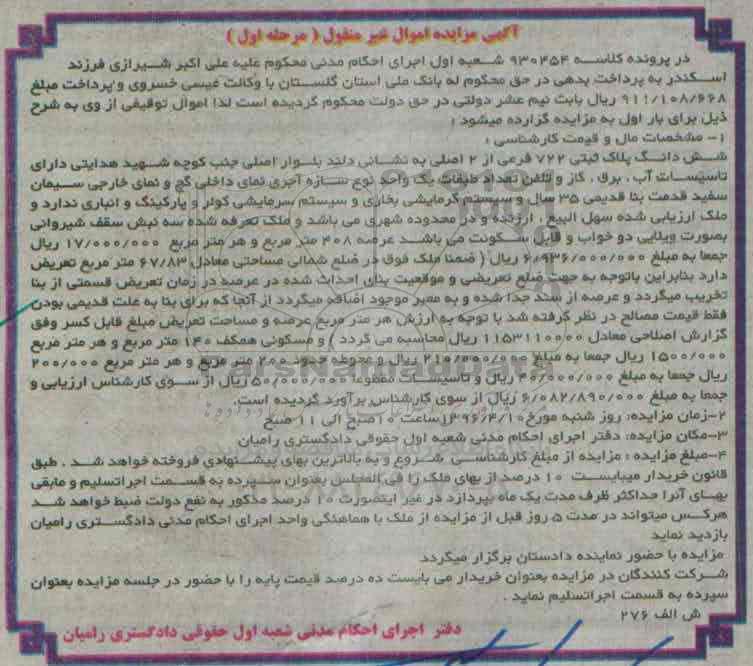 آگهی مزایده اموال غیر منقول ( مرحله اول )
در پرونده کلاسه ۹۳۰۴۵۴ شعبه اول اجرای احکام مدنی محکوم علیه علی اکبر شیرازی فرزند
اسکندر به پرداخت بدهی در حق محکوم له بانک ملی استان گلستان با وکالت عیسی خسروی و پرداخت مبلغ
۹۱۱/۱۰۸/۶۶۸ ریال بابت نیم عشر دولتی در حق دولت محکوم گردیده است لذا اموال توقیفی از وی به شرح
ذیل برای بار اول به مزایده گزارده میشود :
۱- مشخصات مال و قیمت کارشناسی :
شش دانگ پلاک ثبتی ۷۲۲ فرعی از ۲ اصلی به نشانی دلند بلوار اصلی جنب کوچه شهید هدایتی دارای
تاسیسات آب ، برق ، گاز و تلفن تعداد طبقات یک واحد نوع سازه آجری نمای داخلی گچ و نمای خارجی سیمان
سفید قدمت بنا قدیمی ۳۵ سال و سیستم گرمایشی بخاری و سیستم سرمایشی کولر و پارکینگ و انباری ندارد و
ملک ارزیابی شده سهل البیع ، ارزنده و در محدوده شهری می باشد و ملک تعرفه شده سه نبش سقف شیروانی
بصورت ویلایی دو خواب و قابل سکونت می باشد عرصه ۴۰۸ متر مربع و هر متر مربع ۱۷/۰۰۰/۰۰۰ ریال
جمعا به مبلغ ۶/۹۳۶/۰۰۰/۰۰۰ ریال ( ضمنا ملک فوق در ضلع شمالی مساحتی معادل ۶۷/۸۳ متر مربع تعریض
دارد بنابراین باتوجه به جهت ضلع تعریضی و موقعیت بنای احداث شده در عرصه در زمان تعریض قسمتی از بنا
تخریب میگردد و عرصه از سند جدا شده و به معبر موجود اضافه میگردد از آنجا که برای بنا به علت قدیمی بودن
فقط قیمت مصالح در نظر گرفته شد با توجه به ارزش هر متر مربع عرصه و مساحت تعریض مبلغ قابل کسر وفق
گزارش اصلاحی معادل ۱۱۵۳۱۱۰۰۰۰ ریال محاسبه می گردد ) و مسکونی همکف ۱۴۰ متر مربع و هر متر مربع
۱۵۰۰/۰۰۰ ریال جمعا به مبلغ ۲۱۰/۰۰۰/۰۰۰ ریال و محوطه حدود ۲۰۰ متر مربع و هر متر مربع ۲۰۰/۰۰۰
ریال جمعا به مبلغ ۴۰/۰۰۰/۰۰۰ ریال و تاسیسات مقطوعا ۵۰/۰۰۰/۰۰۰ ریال از سوی کارشناس ارزیابی و
جمعا به مبلغ ۶/۰۸۲/۸۹۰/۰۰۰ ریال از سوی کارشناس برآورد گردیده است.
۲-زمان مزایده: روز شنبه مورخ ۱۳۹۶/۴/۱۰ ساعت ۱۰ صبح الی ۱۱ صبح
۳-مکان مزایده: دفتر اجرای احکام مدنی شعبه اول حقوقی دادگستری رامیان
۴-مبلغ مزایده : مزایده از مبلغ کارشناسی شروع و به بالاترین بهای پیشنهادی فروخته خواهد شد . طبق
قانون خریدار میبایست ۱۰ درصد از بهای ملک را فی المجلس بعنوان سپرده به قسمت اجراتسلیم و مابقی
بهای آنرا حداکثر ظرف مدت یک ماه بپردازد در غیر اینصورت ۱۰ درصد مذکور به نفع دولت ضبط خواهد شد
هرکس میتواند در مدت ۵ روز قبل از مزایده از ملک با هماهنگی واحد اجرای احکام مدنی دادگستری رامیان
بازدید نماید
مزایده با حضور نماینده دادستان برگزار میگردد
شرکت کنندگان در مزایده بعنوان خریدار می بایست ده درصد قیمت پایه را با حضور در جلسه مزایده بعنوان
سپرده به قسمت اجراتسلیم نماید .
ش الف ۲۷۶
دفتر اجرای احکام مدنی شعبه اول حقوقی دادگستری رامیان
ParsNamadData